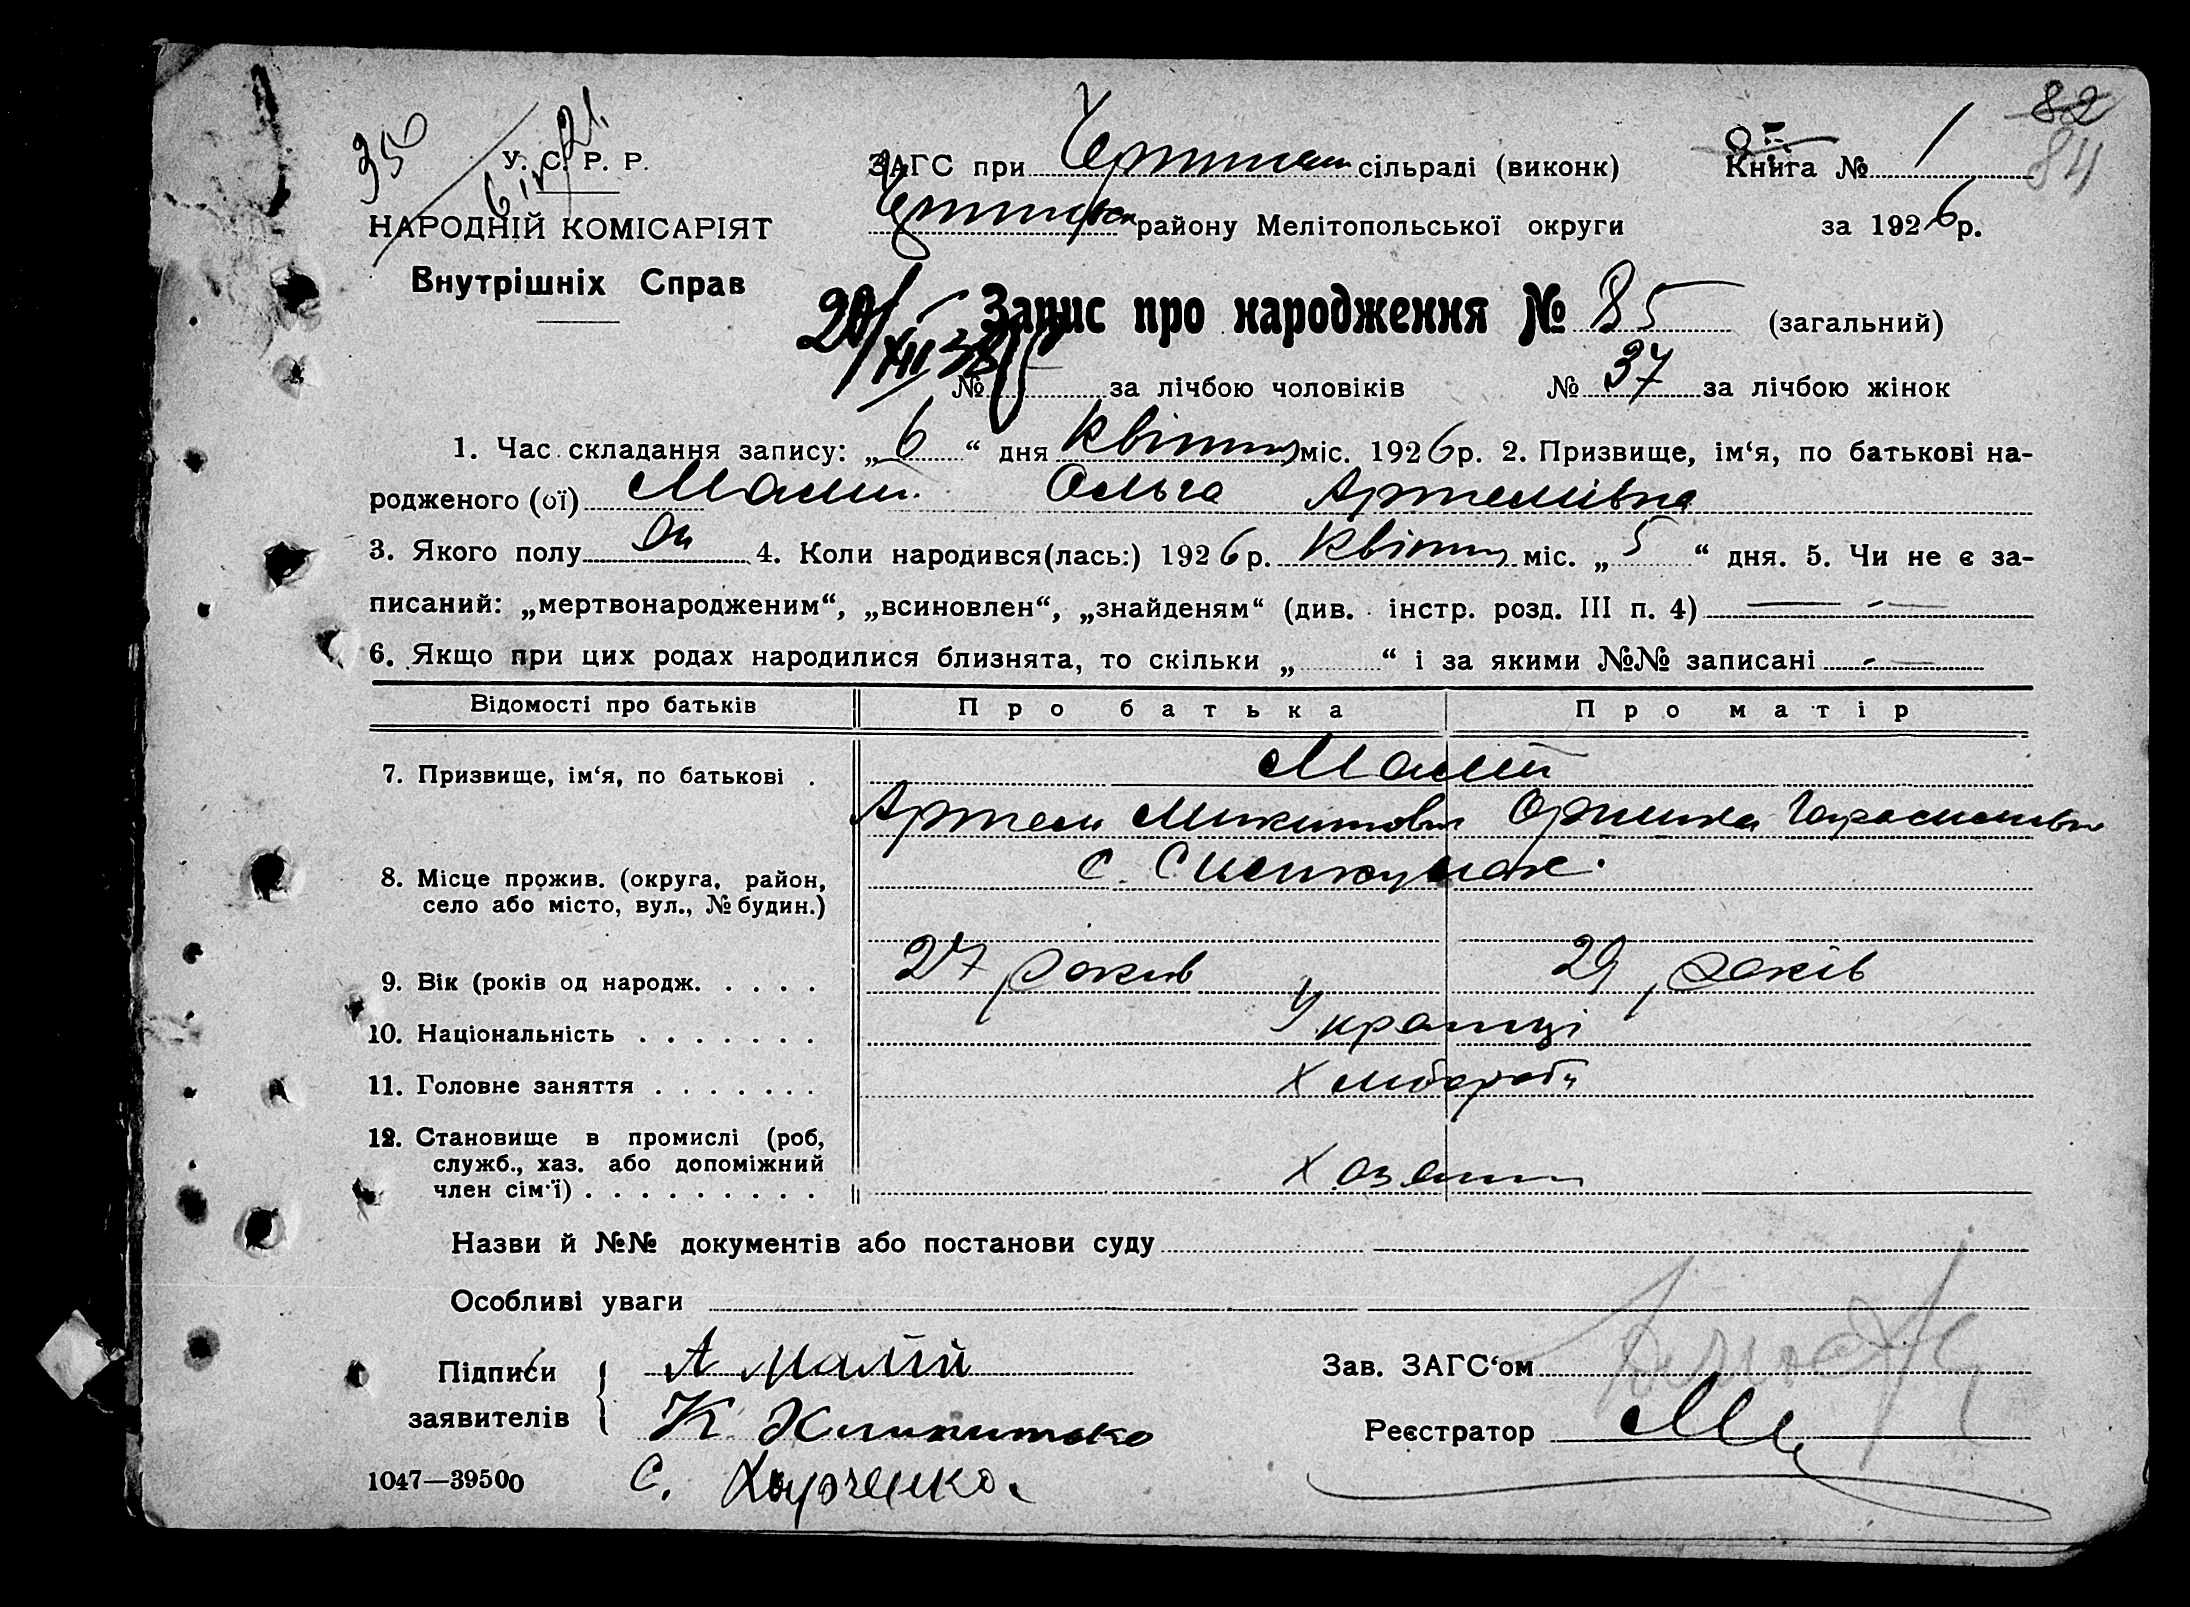 350
82
84
У. С. Р. Р.
НАРОДНІЙ КОМІСАРІЯТ
Внутрішніх Справ
ЗАГС при сільраді (виконк)
району Мелітопольської округи
Книга № 1
за 1926 р.
Запис про народження № 85 (загальний)
20/XII 38
№ за лічбою чоловіків № 37 за лічбою жінок
1. Час складання запису: „6“ дня Квітня міс. 1926 р. 2. Призвище, ім‘я, по батькові на-
родженого (ої) Малий Ольга Артемівна
3. Якого полу 4. Коли народився(лась:) 1926 р. Квітня міс. „5“ дня. 5. Чи не є за-
писаний: „мертвонародженим“, „всиновлен“, „знайденям“ (див. інстр. розд. III п. 4)
6. Якщо при цих родах народилися близнята, то скільки „ “ і за якими №№ записані
Відомості про батьків Про батька Про матір
7. Призвище, ім‘я, по батькові . Малий
Артем Микитович Оришка Герасимівна
8. Місце прожив. (округа, район, с.
село або місто, вул., № будин.)
9. Вік (років од народж. . . . . 27 років 29 років
10. Національність . . . . . . . Українці
11. Головне заняття . . . . . . . Хлібороби
12. Становище в промислі (роб,
служб., хаз. або допоміжний
член сім‘ї) . . . . . . . . . Хозяин
Назви й №№ документів або постанови суду
Особливі уваги
Підписи
заявителів
А Малій
К
С. Харченко.
Зав. ЗАГС‘ом
Реєстратор
1047—39500